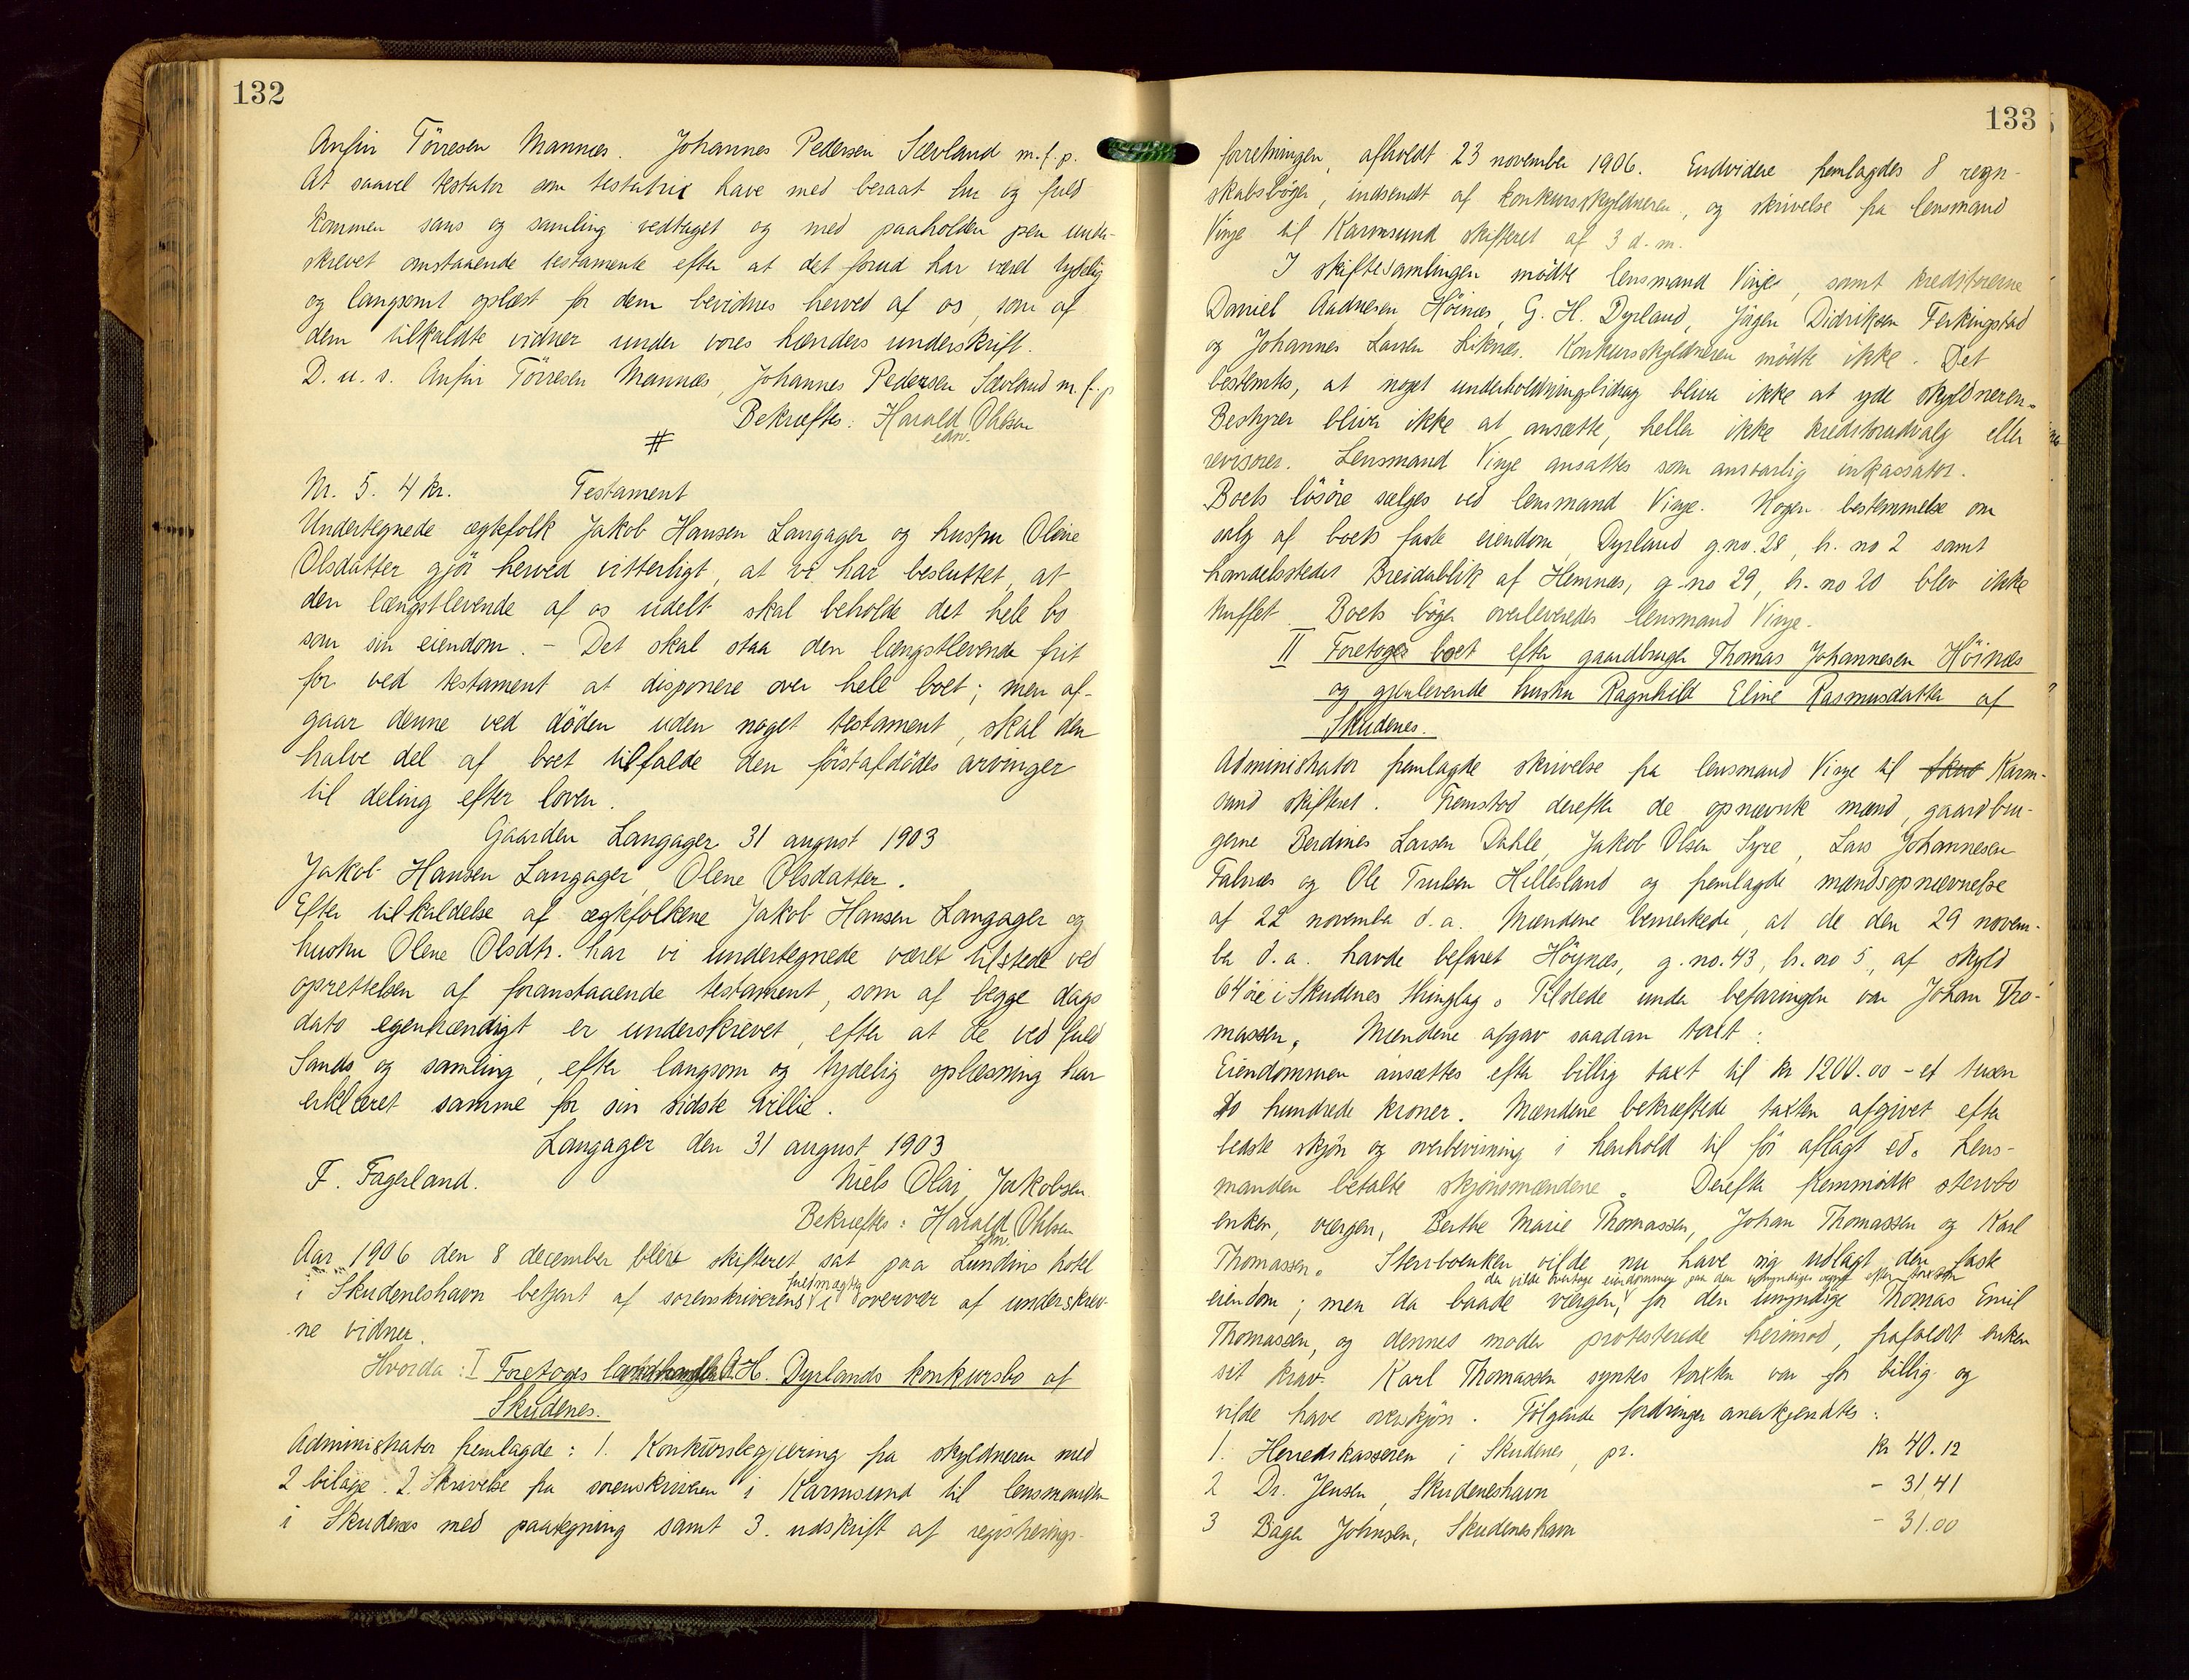 132
Anfin Törresen Mannes. Johannes Pedersen Sævland m. f. p.
At saavel testator som testatrix have med beraat hu og fuld
kommen sans og samling vedtaget og med paaholden pen under-
skrevet omstaaende testamente efter at det forud har været tydelig
og langsomt oplæst for dem bevidnes herved af os, som af
dem tilkaldte vidner under vores hænders underskrift.
D. u. s. Anfin Törresen Mannes, Johannes Pedersen Sævland m. f. p
Bekræftes: Harald Ohlsen
edsv.
#
Nr. 5. 4 kr. Testament
Undertegnede ægtefolk Jakob Hansen Langager og hustru Olene
Olsdatter gjör herved vitterligt, at vi har besluttet, at
den længstlevende af os udelt skal beholde det hele bo
som sin eiendom. - Det skal staa den længstlevende frit
for ved testament at disponere over hele boet; men af-
gaar denne ved döden uden noget testament, skal den
halve del af boet tilfalde den förstafdödes arvinger
til deling efter loven.
Gaarden Langager 31 august 1903
Jakob Hansen Langager, Olene Olsdatter.
Efter tilkaldelse af ægtefolkene Jakob Hansen Langager og
hustru Olene Olsdtr. har vi undertegnede været tilstede ved
oprettelsen af foranstaaende testament, som af begge dags
dato egenhændigt er underskrevet, efter at de ved fuld
Sands og samling, efter langsom og tydelig oplæsning har
erklæret samme for sin sidste villie.
Langager den 31 august 1903
F. Fagerland. Niels Olai Jakobsen
Bekræftes: Harald Ohlsen
edsv.
Aar 1906 den 8 december blev skifteret sat paa Lundins hotel
i Skudeneshavn betjent af sorenskriverens fuldmægtig i overvær af underskrev-
ne vidner.
Hvorda: I Foretoges landhandler G. H. Dyrlands konkursbo af
Skudenes.
Administrator fremlagde: 1. Konkursbegjæring fra skyldneren med
2 bilage. 2. Skrivelse fra sorenskriveren i Karmsund til lensmanden
i Skudenes med paategning samt 3. udskrift af registrerings-
133
forretningen, afholdt 23 november 1906. Endvidere fremlagdes 8 regn-
skabsbøger, indsendt af konkursskyldneren, og skrivelse fra lensmand
Vinje til Karmsund skifteret af 3 d. m.
I skiftesamlingen mödte lensmand Vinje, samt kreditorerne
Daniel Aadnesen Höines, G. H. Dyrland, Jögen Didriksen Ferkingstad
og Johannes Larsen Liknes. Konkursskyldneren mödte ikke. Det
bestemtes, at noget underholdningsbidrag bliver ikke at yde skyldneren.
Bestyrer bliver ikke at ansætte, heller ikke kreditorudvalg eller
revisorer. Lensmand Vinje ansattes som ansvarlig inkassator.
Boets lösöre sælges ved lensmand Vinje. Nogen bestemmelse om
salg af boets faste eiendom, Dyrland g. no. 28, b. no 2 samt
handelsstedet Breidablik af Hemnes, g. no 29, b. no 20 blev ikke
truffet. Boets bøger overleveredes lensmand Vinje.
II Foretoges boet efter gaardbruger Thomas Johannesen Höines
og gjenlevende hustru Ragnhild Eline Rasmusdatter af
Skudenes.
Administrator fremlagde skrivelse fra lensmand Vinje til Skud Karm-
sund skifteret. Fremstod derefter de opnævnte mænd, gaardbru-
gerne Berdines Larsen Dahle, Jakob Olsen Syre, Lars Johannesen
Falnes og Ole Trulsen Hillesland og fremlagde mændsopnævnelse
af 22 november d. a. Mændene bemerkede, at de den 29 novem-
ber d. a. havde befaret Höynes, g. no. 43, b. no 5, af skyld
64 öre i Skudenes thinglag. Tilstede under befaringen var Johan Tho-
massen. Mændene afgav saadan taxt:
Eiendommen ansættes efter billig taxt til kr 1200.00 - et tusen
to hundrede kroner. Mændene bekræftede taxten afgivet efter
bedste skjøn og overbevisning i henhold til för aflagt ed. Lens-
manden betalte skjönsmændene. Derefter fremmödte stervbo
enken, værgen, Berthe Marie Thomassen, Johan Thomassen og Karl
Thomassen. Stervboenken vilde nu have sig udlagt den faste
der vilde overtage eiendommen paa den umyndiges vegne efter taxten
eiendom; men da baade værgen, for den umyndige Thomas Emil
Thomassen, og dennes moder protesterede herimod, frafaldt enken
sit krav. Karl Thomassen syntes taxten var for billig og
vilde have overskjön. Fölgende fordringer anerkjendtes:
1. Herredskasseren i Skudenes, pr. kr 40.12
2 Dr. Jensen, Skudeneshavn - 31,41
3 Bager Johnsen, Skudeneshavn - 31.00